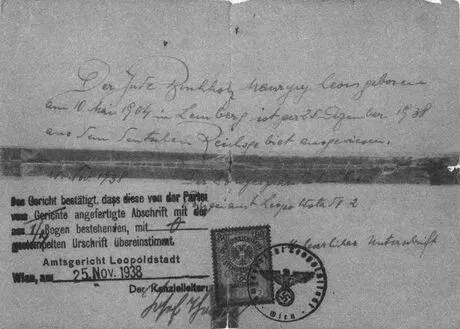 Der Jude Buchholz Maurycy Leon geboren
am 10 Mai 1904 in Lemberg ist per 25 Dezember 1938
aus dem Deutschen Reichsgebiet ausgewiesen.
1938
amt Leopoldstadt N 2
Unterschrift
Das Gericht bestätigt, dass diese von der Partei
vom Gerichte angefertigte Abschrift mit der
am Bogen bestehenden, mit
gestempelten Urschrift übereinstimmt.
Amtsgericht Leopoldstadt
Wien, am 25. Nov. 1938
Der Kanzleileiter:
Leopoldstadt
Wien